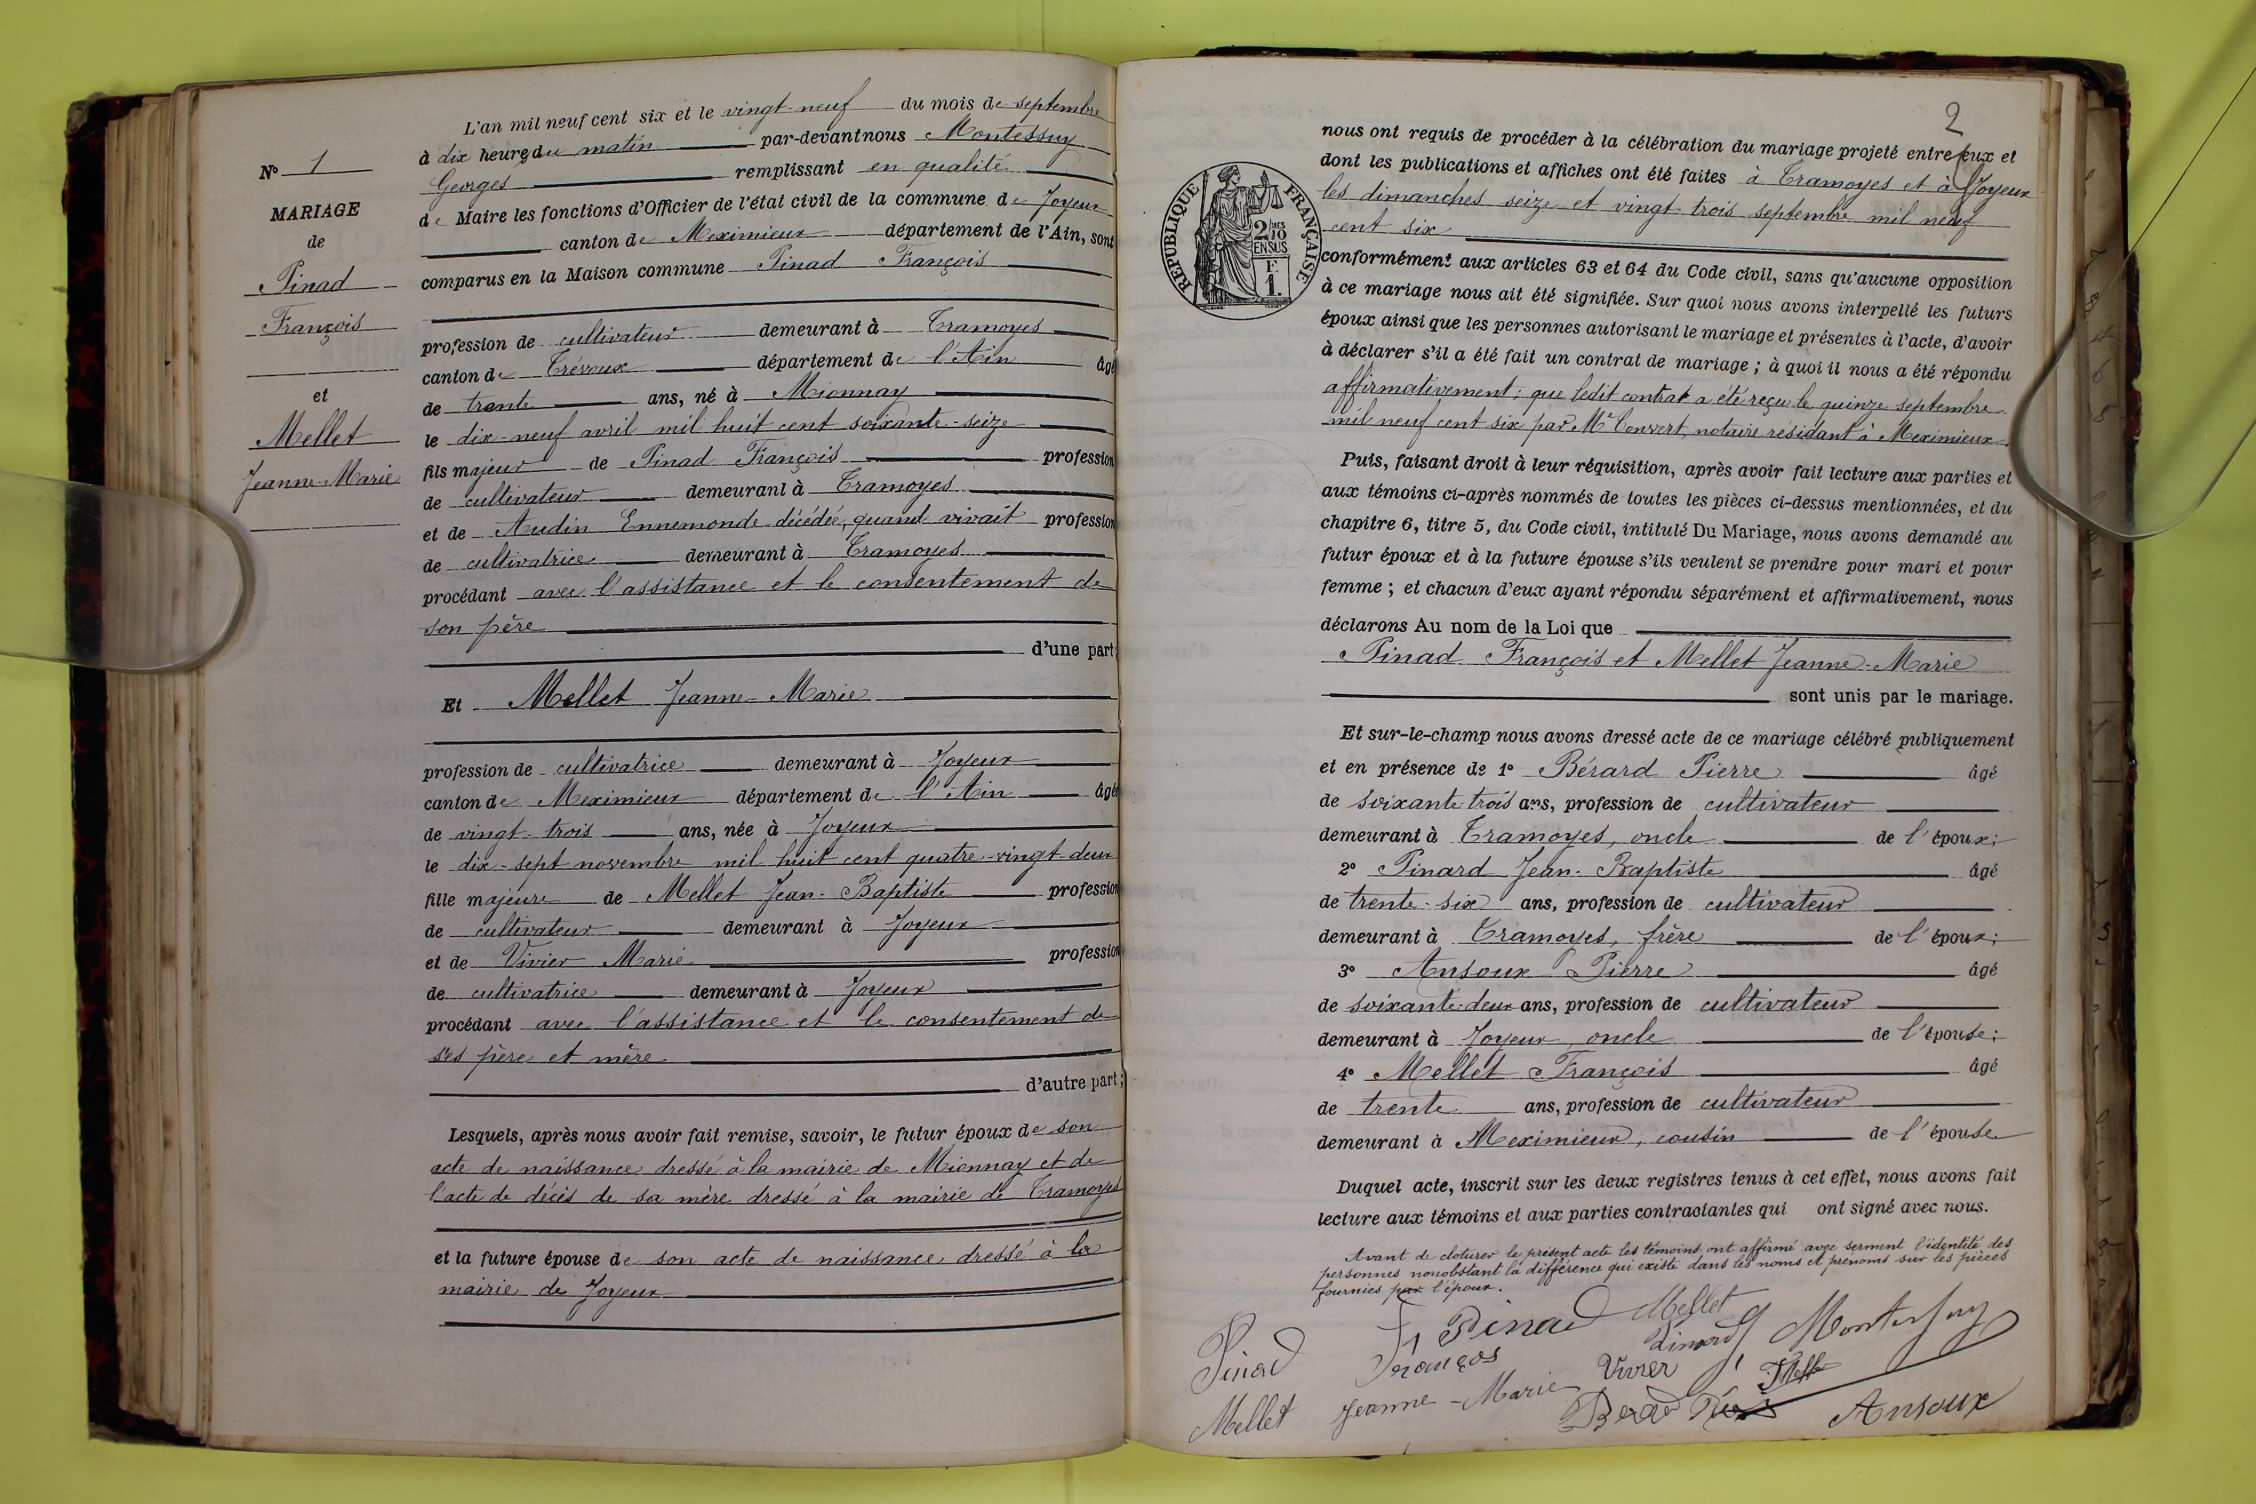 N° 1
MARIAGE
de
Pinad
François
et
Mellet
Jeanne-Marie
L'an mil neuf cent six et le vingt-neuf du mois de septembre
à dix heures du matin par-devant nous Montessuy
Georges remplissant en qualité
de Maire les fonctions d'Officier de l'état civil de la commune de Joyeux
canton de Meximieux département de l'Ain, sont
comparus en la Maison commune Pinad François
profession de cultivateur demeurant à Tramoyes
canton de Trévoux département de l'Ain âgé
de trente ans, né à Mionnay
le dix-neuf avril mil huit cent soixante-seize
fils majeur de Pinad François profession
de cultivateur demeurant à Tramoyes
et de Audin Ennemonde décédée, quand vivait profession
de cultivatrice demeurant à Tramoyes
procédant avec l'assistance et le consentement de
son père
d'une part;
Et Mellet Jeanne-Marie
profession de cultivatrice demeurant à Joyeux
canton de Meximieux département de l'Ain âgée
de vingt-trois ans, née à Joyeux
le dix-sept novembre mil huit cent quatre-vingt-deux
fille majeure de Mellet Jean-Baptiste profession
de cultivateur demeurant à Joyeux
et de Vivier Marie profession
de cultivatrice demeurant à Joyeux
procédant avec l'assistance et le consentement de
ses père et mère
d'autre part;
Lesquels, après nous avoir fait remise, savoir, le futur époux de son
acte de naissance dressé à la mairie de Mionnay et de
l'acte de décès de sa mère dressé à la mairie de Tramoyes
et la future épouse de son acte de naissance dressé à la
mairie de Joyeux
2
RÉPUBLIQUE FRANÇAISE
2/10
EN SUS
F.
1.
nous ont requis de procéder à la célébration du mariage projeté entre eux et
dont les publications et affiches ont été faites à Tramoyes et à Joyeux
les dimanches seize et vingt-trois septembre mil neuf
cent six
conformément aux articles 63 et 64 du Code civil, sans qu'aucune opposition
à ce mariage nous ait été signifiée. Sur quoi nous avons interpellé les futurs
époux ainsi que les personnes autorisant le mariage et présentes à l'acte, d'avoir
à déclarer s'il a été fait un contrat de mariage; à quoi il nous a été répondu
affirmativement; que ledit contrat a été reçu le quinze septembre
mil neuf cent six par Me Convert, notaire résidant à Meximieux.
Puis, faisant droit à leur réquisition, après avoir fait lecture aux parties et
aux témoins ci-après nommés de toutes les pièces ci-dessus mentionnées, et du
chapitre 6, titre 5, du Code civil, intitulé Du Mariage, nous avons demandé au
futur époux et à la future épouse s'ils veulent se prendre pour mari et pour
femme; et chacun d'eux ayant répondu séparément et affirmativement, nous
déclarons Au nom de la Loi que
Pinad François et Mellet Jeanne-Marie
sont unis par le mariage.
Et sur-le-champ nous avons dressé acte de ce mariage célébré publiquement
et en présence de 1° Bérard Pierre âgé
de soixante trois ans, profession de cultivateur
demeurant à Tramoyes, oncle de l'époux;
2° Pinard Jean-Baptiste âgé
de trente-six ans, profession de cultivateur
demeurant à Tramoyes, frère de l'époux;
3° Ansoux Pierre âgé
de soixante-deux ans, profession de cultivateur
demeurant à Joyeux, oncle de l'épouse;
4° Mellet François âgé
de trente ans, profession de cultivateur
demeurant à Meximieux, cousin de l'épouse
Duquel acte, inscrit sur les deux registres tenus à cet effet, nous avons fait
lecture aux témoins et aux parties contractantes qui ont signé avec nous.
Avant de cloturer le présent acte les témoins ont affirmé avec serment l'identité des
personnes nonobstant la différence qui existe dans les noms et prénoms sur les pièces
fournies par l'époux.
Pinad François Pinad Mellet
Pinard Montessuy
Vivier
Mellet Jeanne-Marie
Ansoux